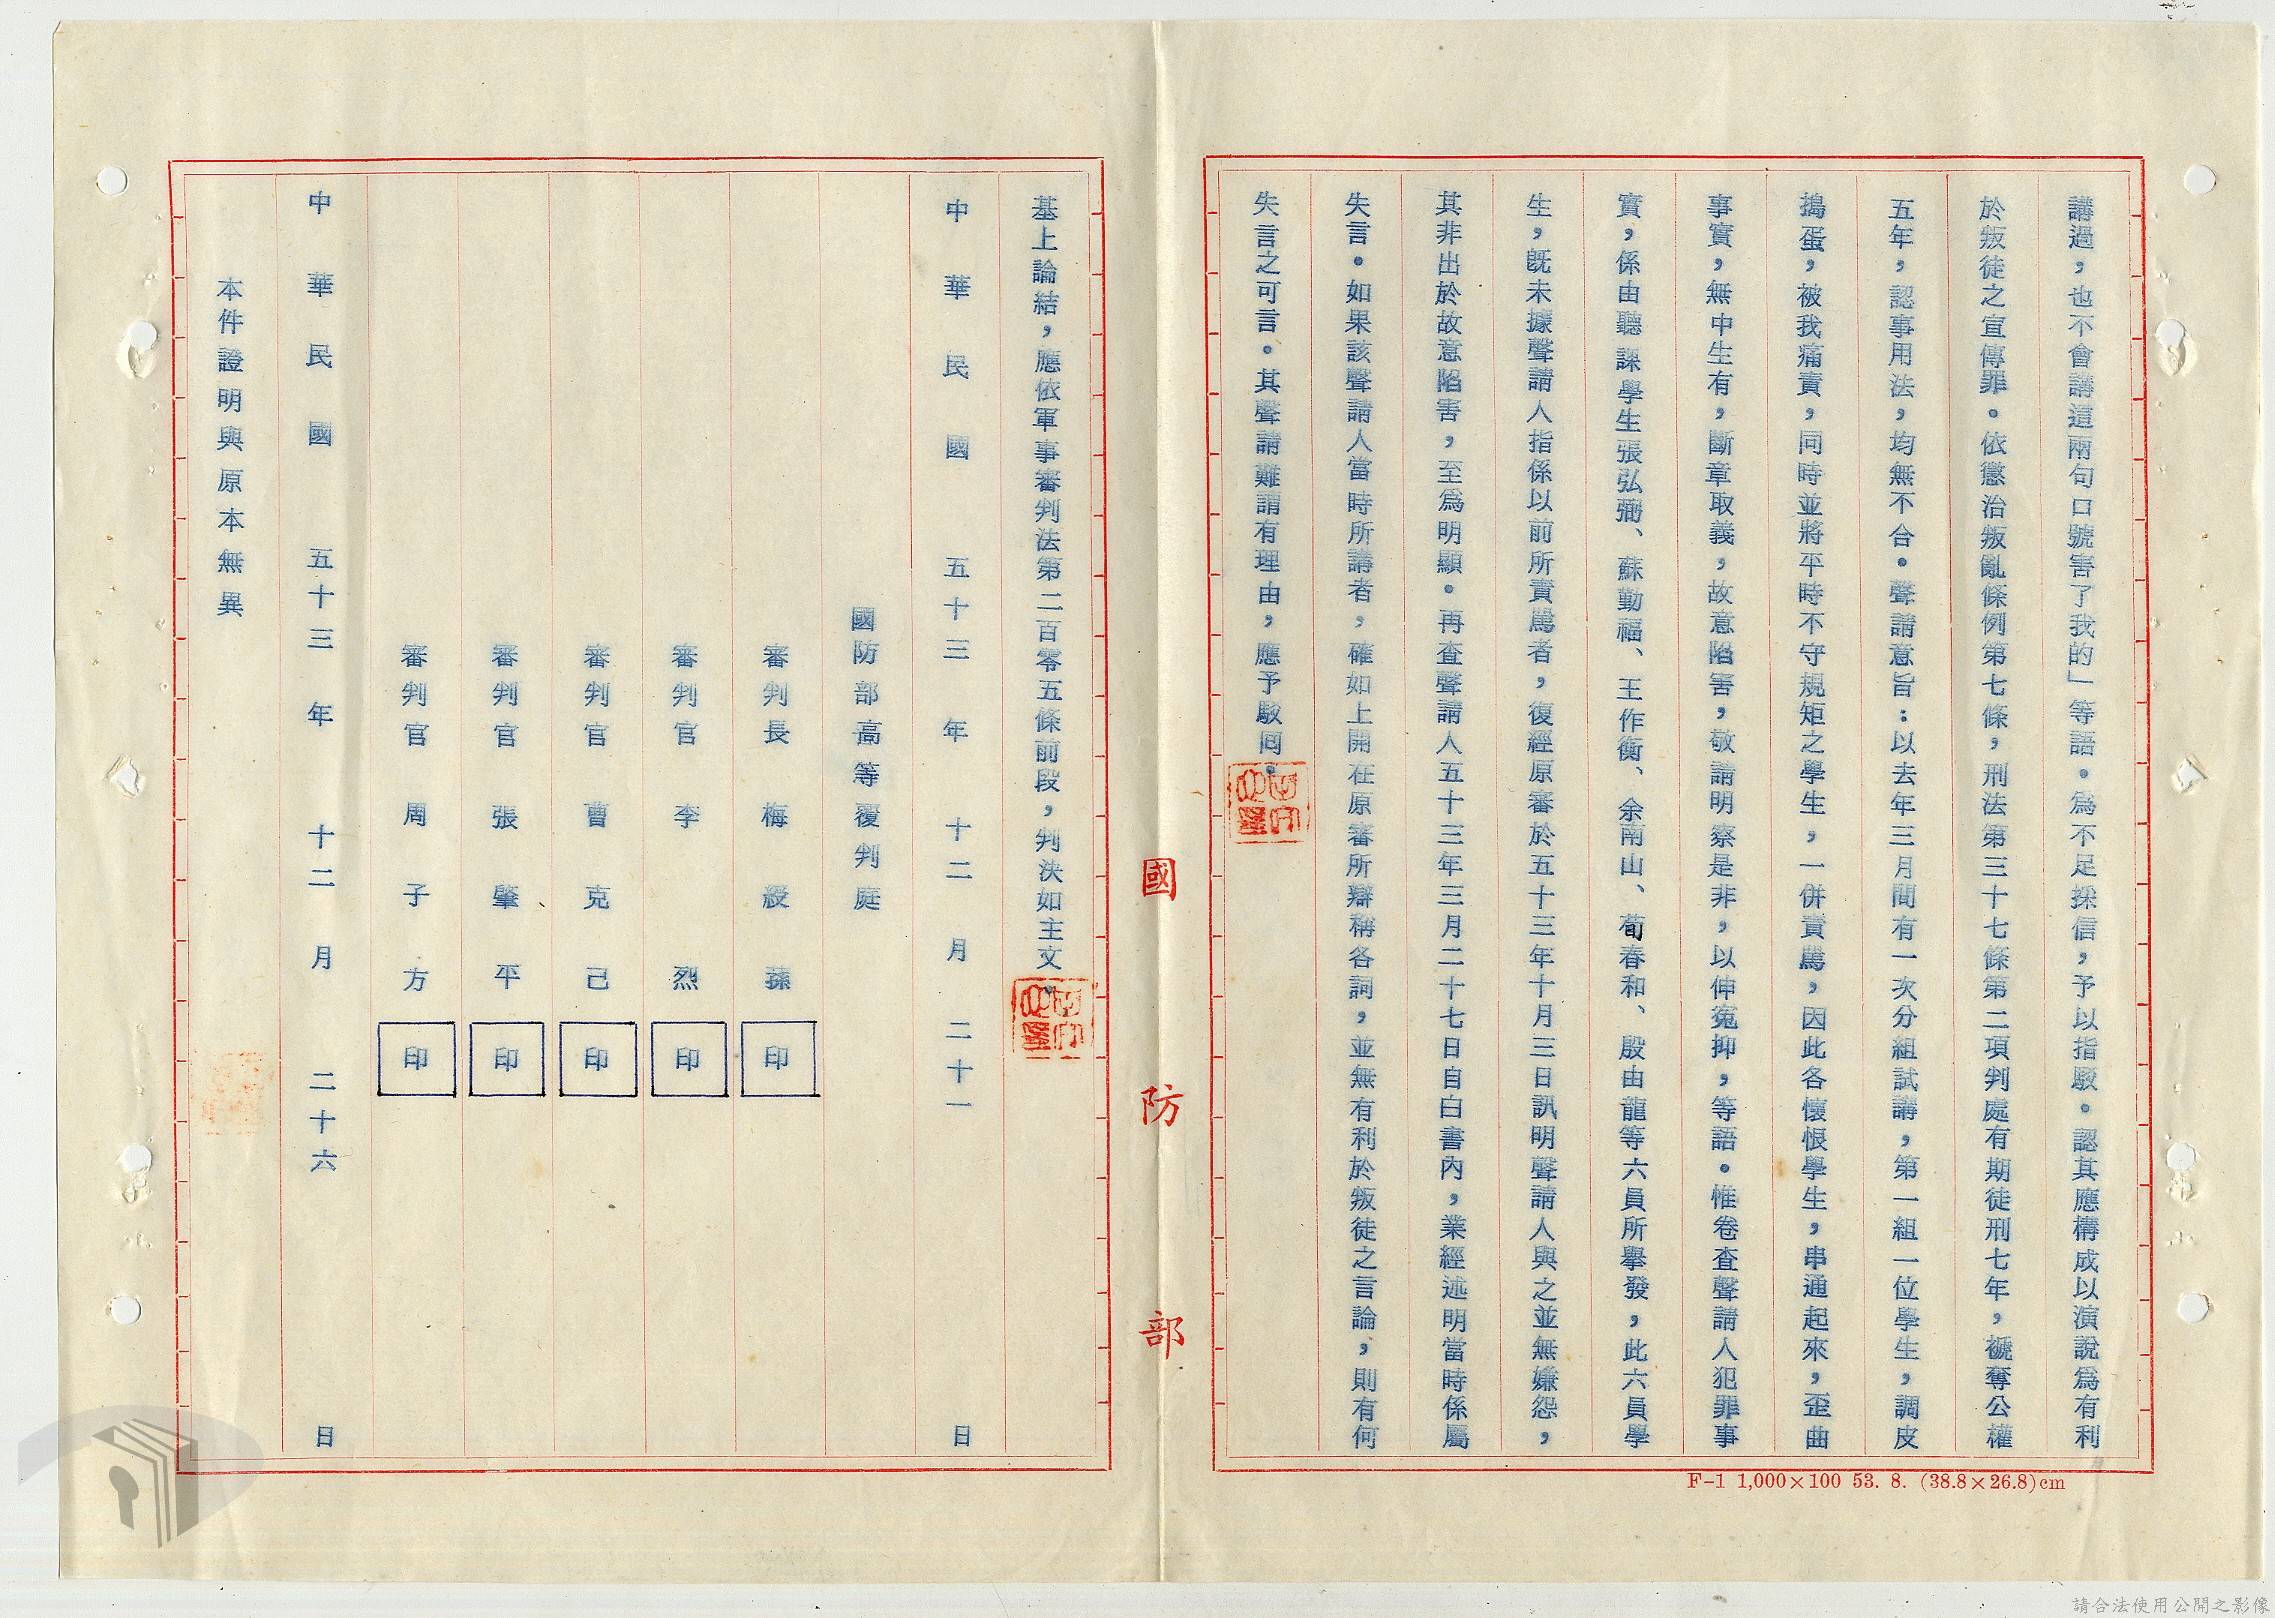 講過，也不會講這兩句口號害了我的」等語。為不足採信，予以指駁。認其應構成以演說為有利
於叛徒之宣傳罪。依懲治叛亂條例第七條，刑法第三十七條第二項判處有期徒刑七年，褫奪公權
五年，認事用法，均無不合。聲請意旨：以去年三月間有一次分組試講，第一組一位學生，調皮
搗蛋，被我痛責，同時並將平時不守規矩之學生，一併責罵，因此各懷恨學生，串通起來，歪曲
事實，無中生有，斷章取義，故意陷害，敬請明察是非，以伸冤抑，等語。惟卷查聲請人犯罪事
實，係由聽課學生張弘弼、蘇勤福、王作衡、余南山、荀春和、殷由龍等六員所舉發，此六員學
生，既未據聲請人指係以前所責罵者，復經原審於五十三年十月三日訊明聲請人與之並無嫌怨，
其非出於故意陷害，至為明顯。再查聲請人五十三年三月二十七日自白書內，業經述明當時係屬
失言。如果該聲請人當時所講者，確如上開在原審所辯稱各詞，並無有利於叛徒之言論，則有何
失言之可言。其聲請難謂有理由，應予駁回。
國防部
基上論結，應依軍事審判法第二百零五條前段，判決如主文。
中華民國五十三年十二月二十一日
國防部高等覆判庭
審判長梅綬蓀印
審判官李烈印
審判官曹克己印
審判官張肇平印
審判官周子方印
中華民國五十三年十二月二十六日
本件證明與原本無異
F-1 1,000×100 53. 8. (38.8×26.8)cm
請合法使用公開之影像